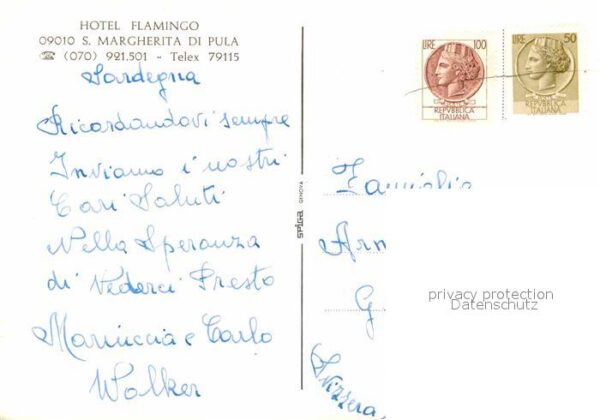 HOTEL FLAMINGO
09010 S. MARGHERITA DI PULA
☎ (070) 921.501 - Telex 79115
Sardegna
Ricordandovi sempre
Inviamo i nostri
Cari Saluti
Nella Speranza
di Vederci Presto
Mariuccia e Carlo
Walker
LIRE 100
REPVBBLICA
ITALIANA
LIRE 50
REPVBBLICA
ITALIANA
Famiglia
Arn
G
Svizzera
privacy protection
Datenschutz